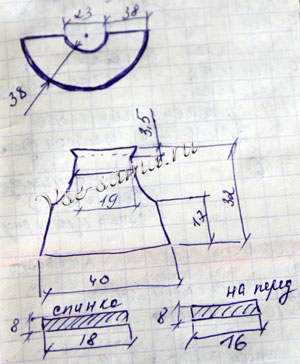 23 38
38
3,5
19
17 32
40
спинка на перед
8 8
18 16